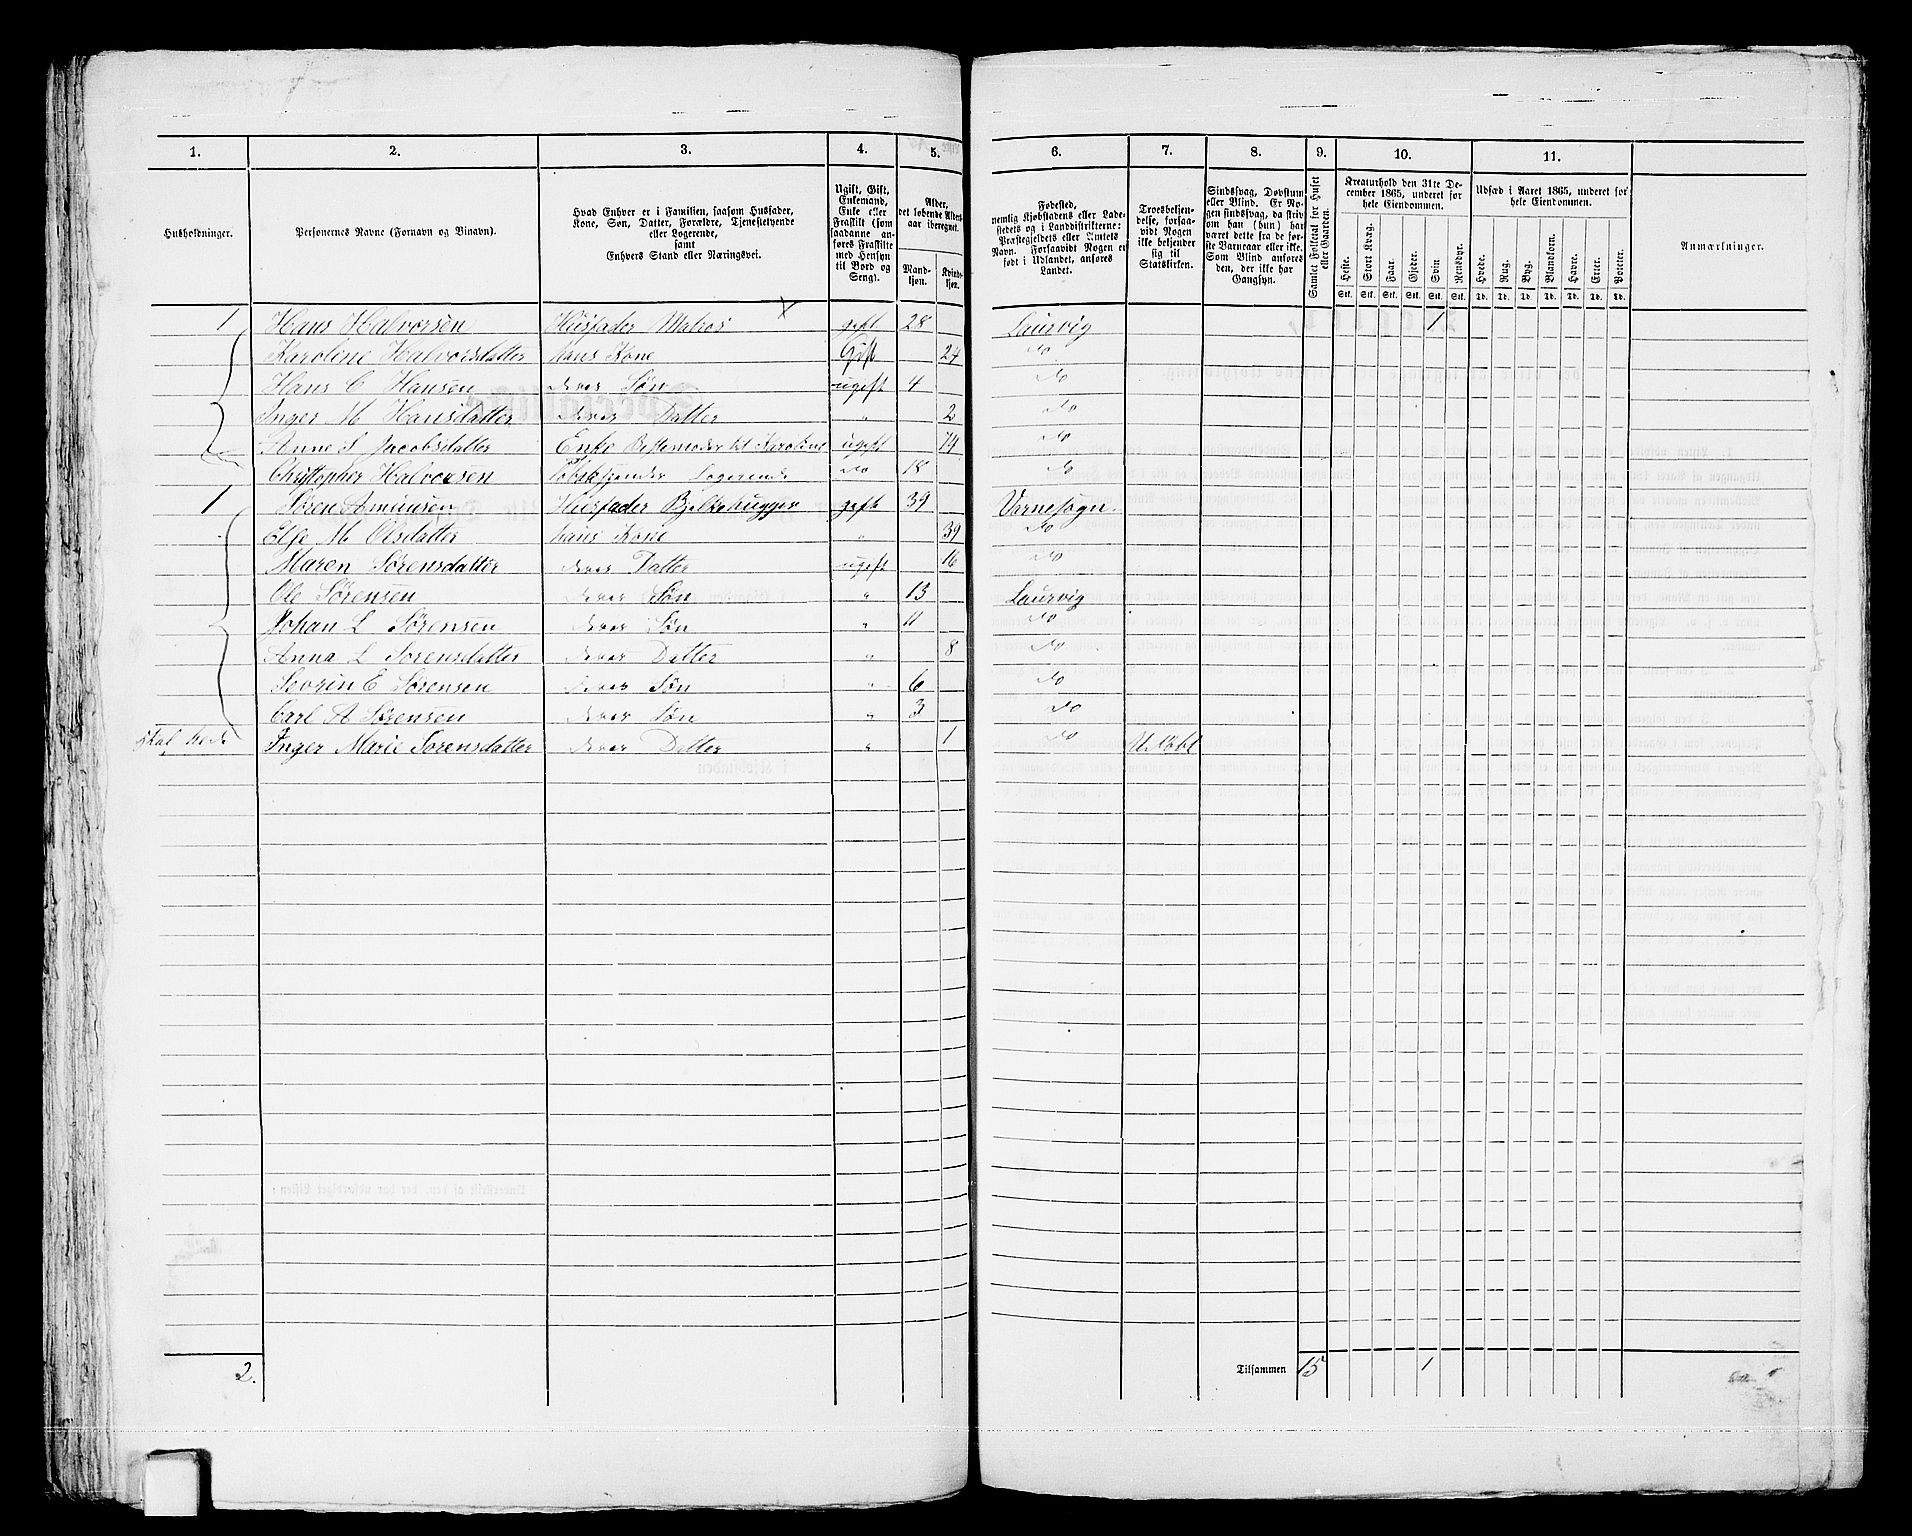 1. 2. 3. 4. 5. 6. 7. 8. 9. 10. 11.
Husholdninger.
Personernes Navne (Fornavn og Binavn).
Hvad Enhver er i Familien, saasom Husfader,
Kone, Søn, Datter, Forældre, Tjenestetyende
eller Logerende,
samt
Enhvers Stand eller Næringsvei.
Ugift, Gift,
Enkemand,
Enke eller
Fraskilt (som
saadanne an-
føres Fraskilte
med Hensyn
til Bord og
Seng).
Alder,
det løbende Alders-
aar iberegnet.
Mand-
kjøn.
Kvinde-
kjøn.
Fødested,
nemlig Kjøbstadens eller Lade-
stedets og i Landdistrikterne:
Præstegjeldets eller Amtets
Navn. Forsaavidt Nogen er
født i Udlandet, anføres
Landet.
Troesbekjen-
delse, forsaa-
vidt Nogen
ikke bekjender
sig til
Statskirken.
Sindssvag, Døvstum
eller Blind. Er No-
gen sindssvag, da skriv
om han (hun) har
været dette fra de før-
ste Barneaar eller ikke.
Som Blind anføres
den, der ikke har
Gangsyn.
Samlet Folketal for Huset
eller Gaarden.
Kreaturhold den 31te De-
cember 1865, underet for
hele Eiendommen.
Heste. Stort Kvæg. Faar. Gjeder. Svin. Rensdyr.
Stk. Stk. Stk. Stk. Stk. Stk.
Udsæd i Aaret 1865, underet for
hele Eiendommen.
Hvede. Rug. Byg. Blandkorn. Havre. Erter. Poteter.
Td. Td. Td. Td. Td. Td. Td.
Anmærkninger.
1 Hans Halvorsen Husfader Matros gift 28 Laurvig 1
Karoline Halvorsdatter hans Kone Gift 24 Do
Hans C Hansen deres Søn ugift 4 Do
Inger M Hansdatter deres Datter " 2 Do
Anne S Jacobsdatter Enke Bestemoder til Karoline ugift 74 Do
Christopher Halvorsen Logerende Do 18 Do
1 Søren Amunsen Husfader Bjelkehugger gift 39
Else M Olsdatter hans Kone " 39 Do
Maren Sørensdatter deres Datter ugift 16 Do
Ole Sørensen deres Søn " 13 Laurvig
Johan L Sørensen deres Søn " 11 Do
Anna L Sørensdatter deres Datter " 8 Do
Sevrin E Sørensen deres Søn " 6 Do
Carl A Sørensen deres Søn " 3 Do
Inger Marie Sorensdatter deres Datter " 1 Do Udøbt
2. Tilsammen 15 1